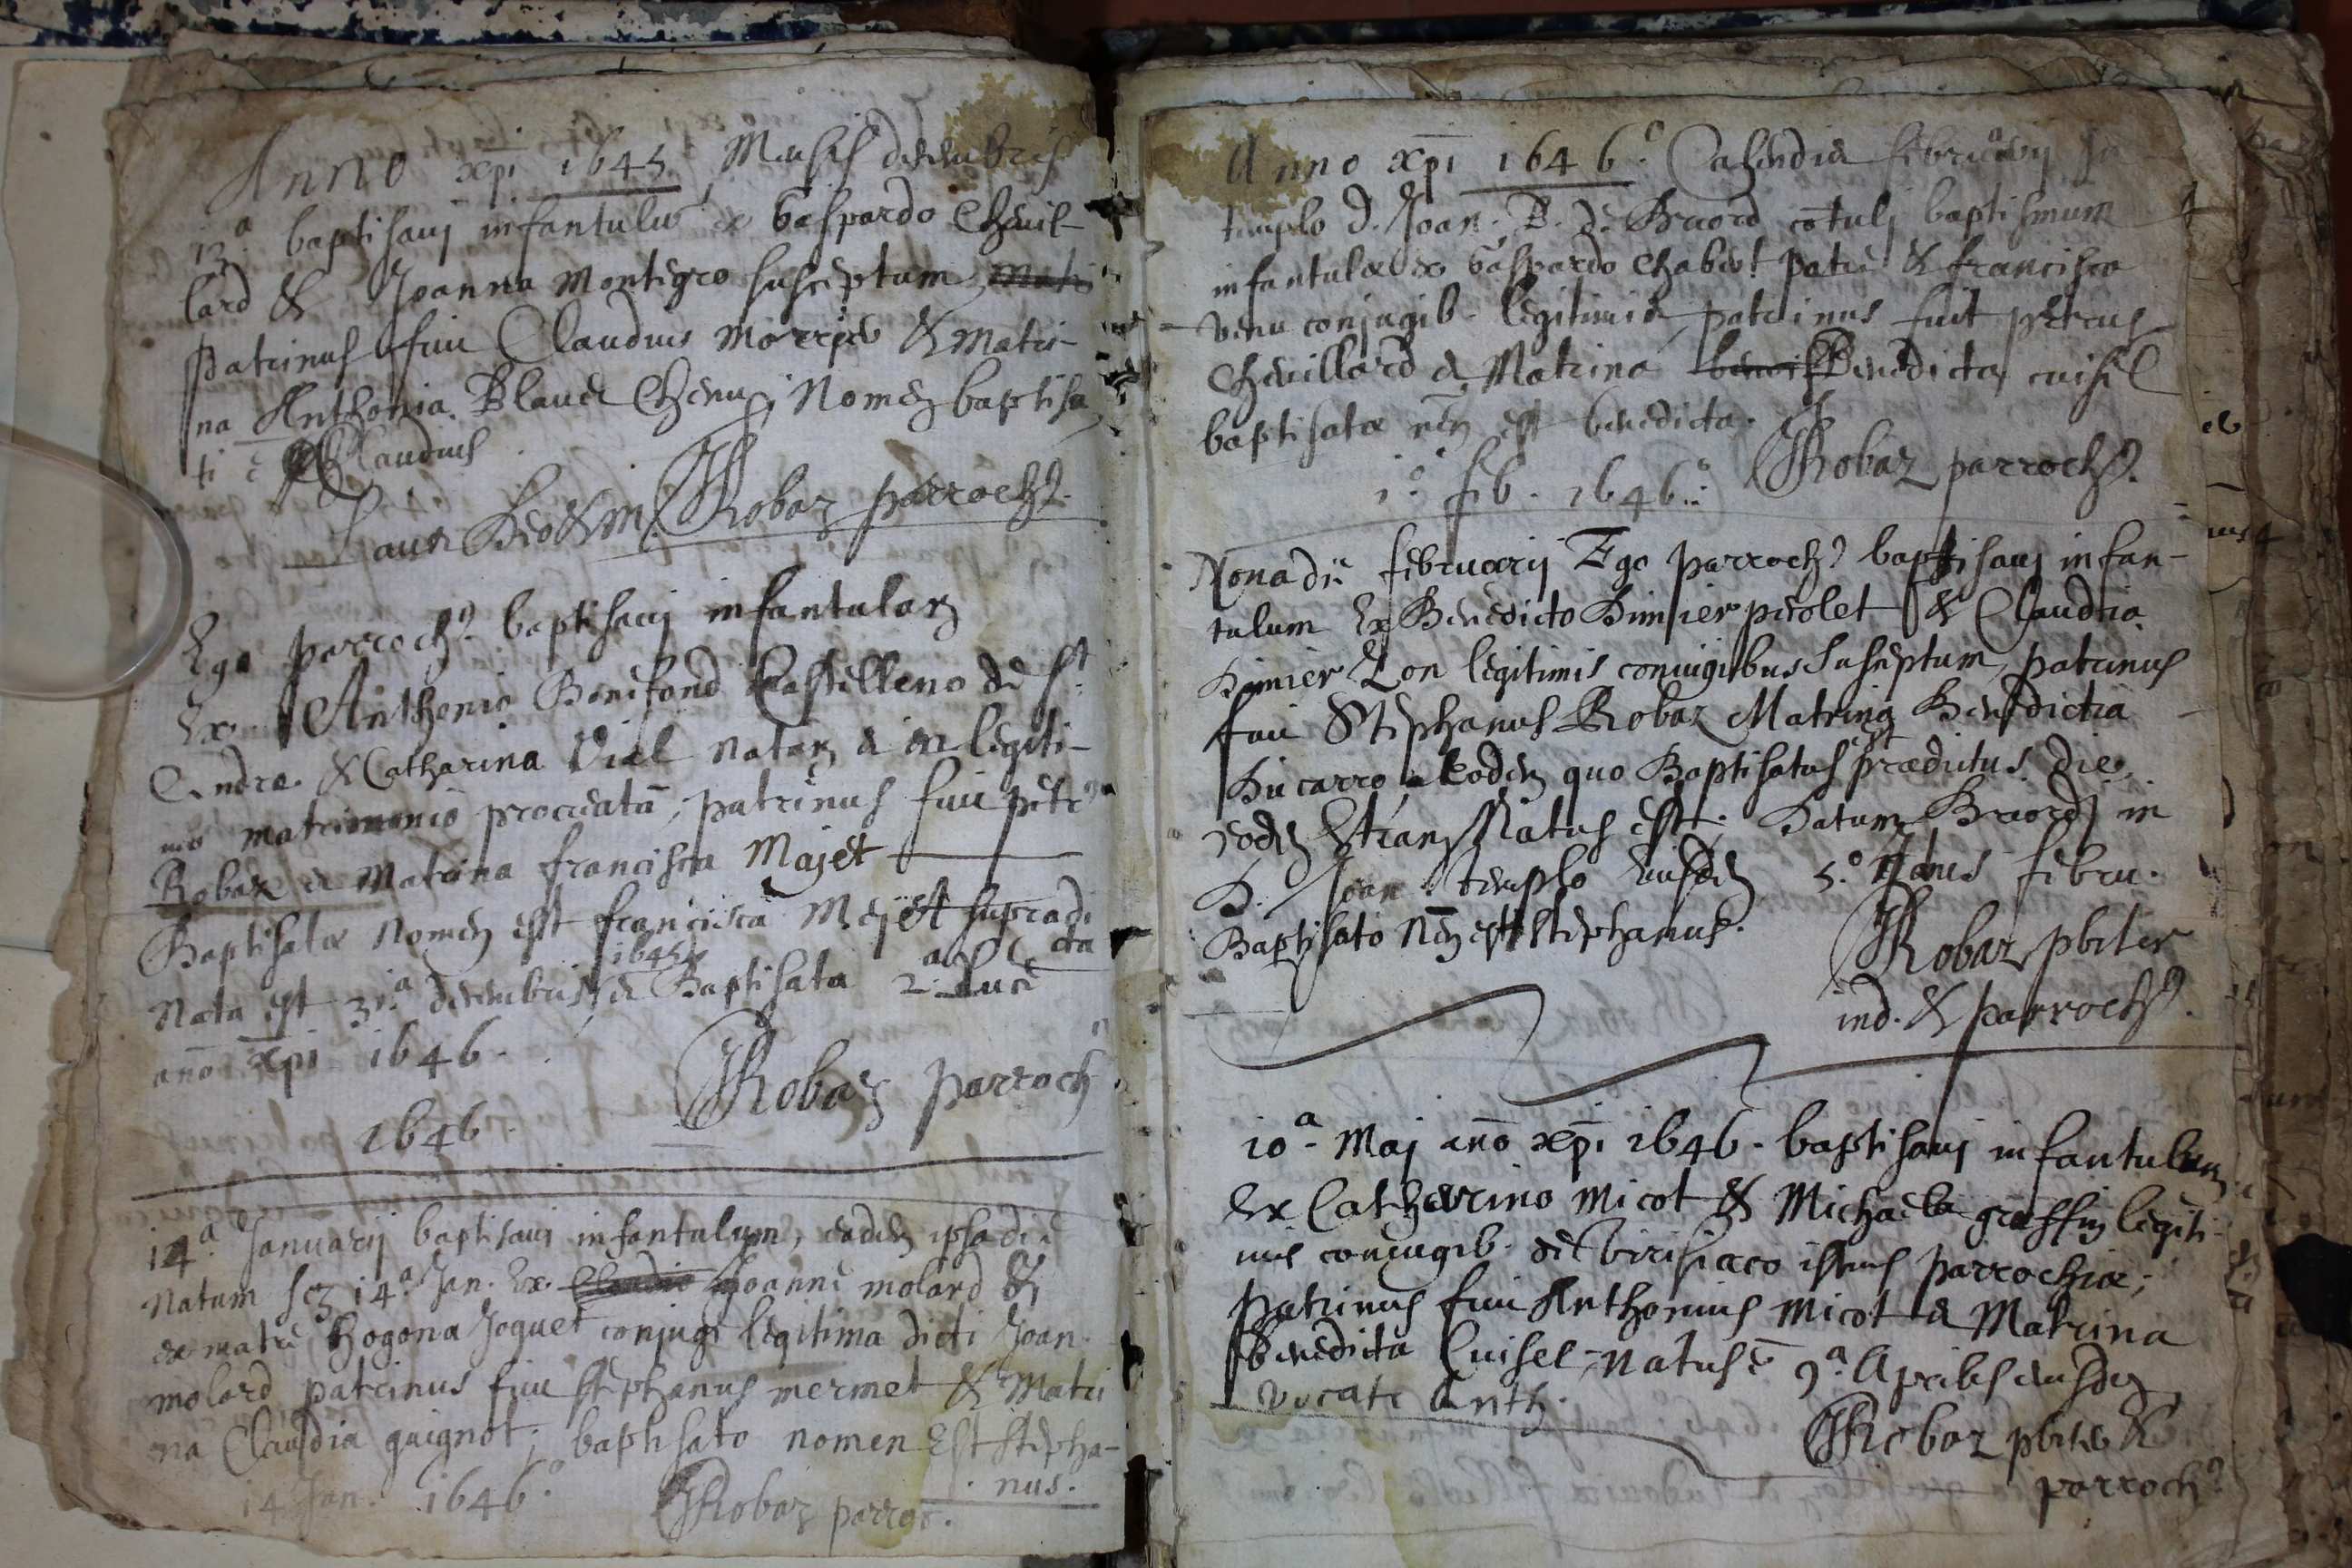 Anno xpi 1645 Mensis decembris
13.a baptisavj infantulū ex Gaspardo Chevil-
lard & Joanna Montegro susceptum
Patrinus fuit Claudius & Matri-
na Anthonia Blanc Chenu, Nomen baptisa
ti ē Claudius
Robaz parroch9.
Ego parroch9. baptisavj infantulam
Ex Anthonio Bonefond Castelleno de St
Andre & Catharina Viel natam & in legiti-
mo matrimonio procreatā, patrinus fuit petr9
Robaz & Matrina francisca Majet
Baptisatæ Nomen est francisca Mejet supradi
cta
1645
Nata est 31.a decembris & Baptisata 2.a
año xpi 1646.
Robaz parroch
1646.
14.a Januarij baptisavj infantulum, eadem ipsa die
Natum scz 14.a Jan. Ex Joanne molard &
ex matre Hogona Joguet conjuge legitima dicti Joan.
molard patrinus fuit stephanus mermet & Matri
na Claudia guignot; baptisato nomen Est stepha-
nus.
14 Jan. 1646.o Robaz parroc.
Anno xpi 1646.o Calendis februarij In
templo d. Joan. B. de Briord cōtulj baptismum
infantulæ ex Gaspardo Chabert patre & francisca
Venu conjugib. legitimis, patrinus fuit petrus
Chevillard & Matrina Benedicta cuisel
baptisatæ nēn est benedicta.
1.o feb. 1646.o Robaz parroch9.
Nona die februarij Ego parroch9 baptisavj infan-
tulum Ex Benedicto Dimier picolet & Claudia
Dimier Lon legitimis coniugibus susceptum, patrinus
fuit Stephanus Robaz Matrina Benedicta
Ducarro, & eodem quo Baptisatus est prædictus die
eodem Datum Briordj in
D. Joan. templo Eiusdem 5.o Idus febru.
Baptisato Nēn est stephanus.
Robaz pbiter
ind. & parroch9.
10.a Maj año xpi 1646. baptisavj infantulum
Ex Catherino Micot & Michaela graffin legiti-
mis coniugib. de Virisiaco istius parrochiæ;
patrinus fuit Anthonius Micot & Matrina
benedicta Cuisel, Natus ē 9.a Aprilis eiusdem
Vocatr Anth.
Robaz pbiter &
parroch9